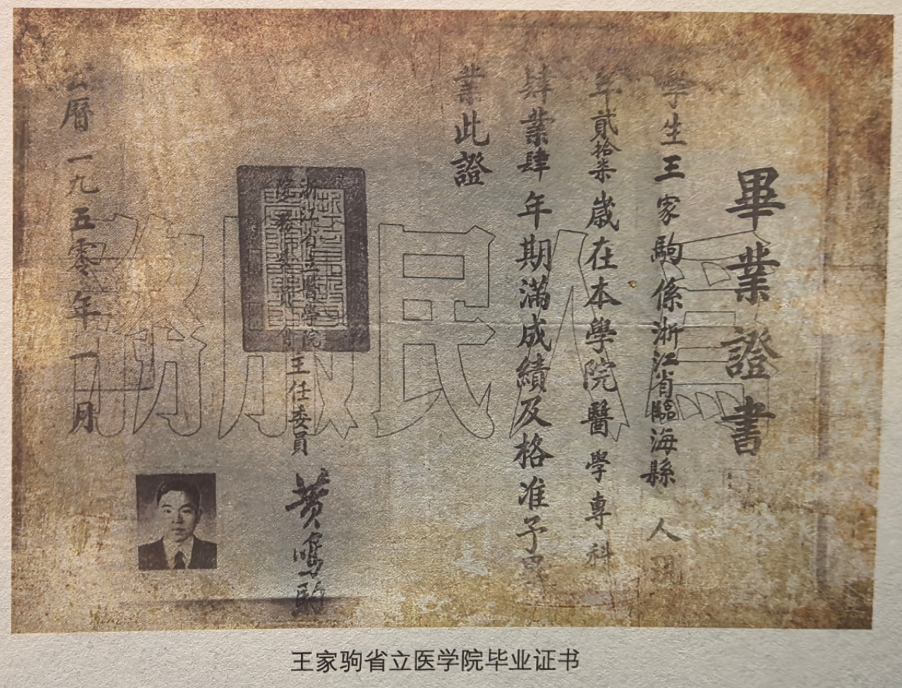 畢業證書
學生王家駒係浙江省臨海縣人現
年貳拾柒歲在本學院醫學專科
肆業肆年期滿成績及格准予畢
業此證
浙江省立醫學院
院務
主任委員 黃鳴駒
公曆一九五零年一月
為人民服務
王家驹省立医学院毕业证书